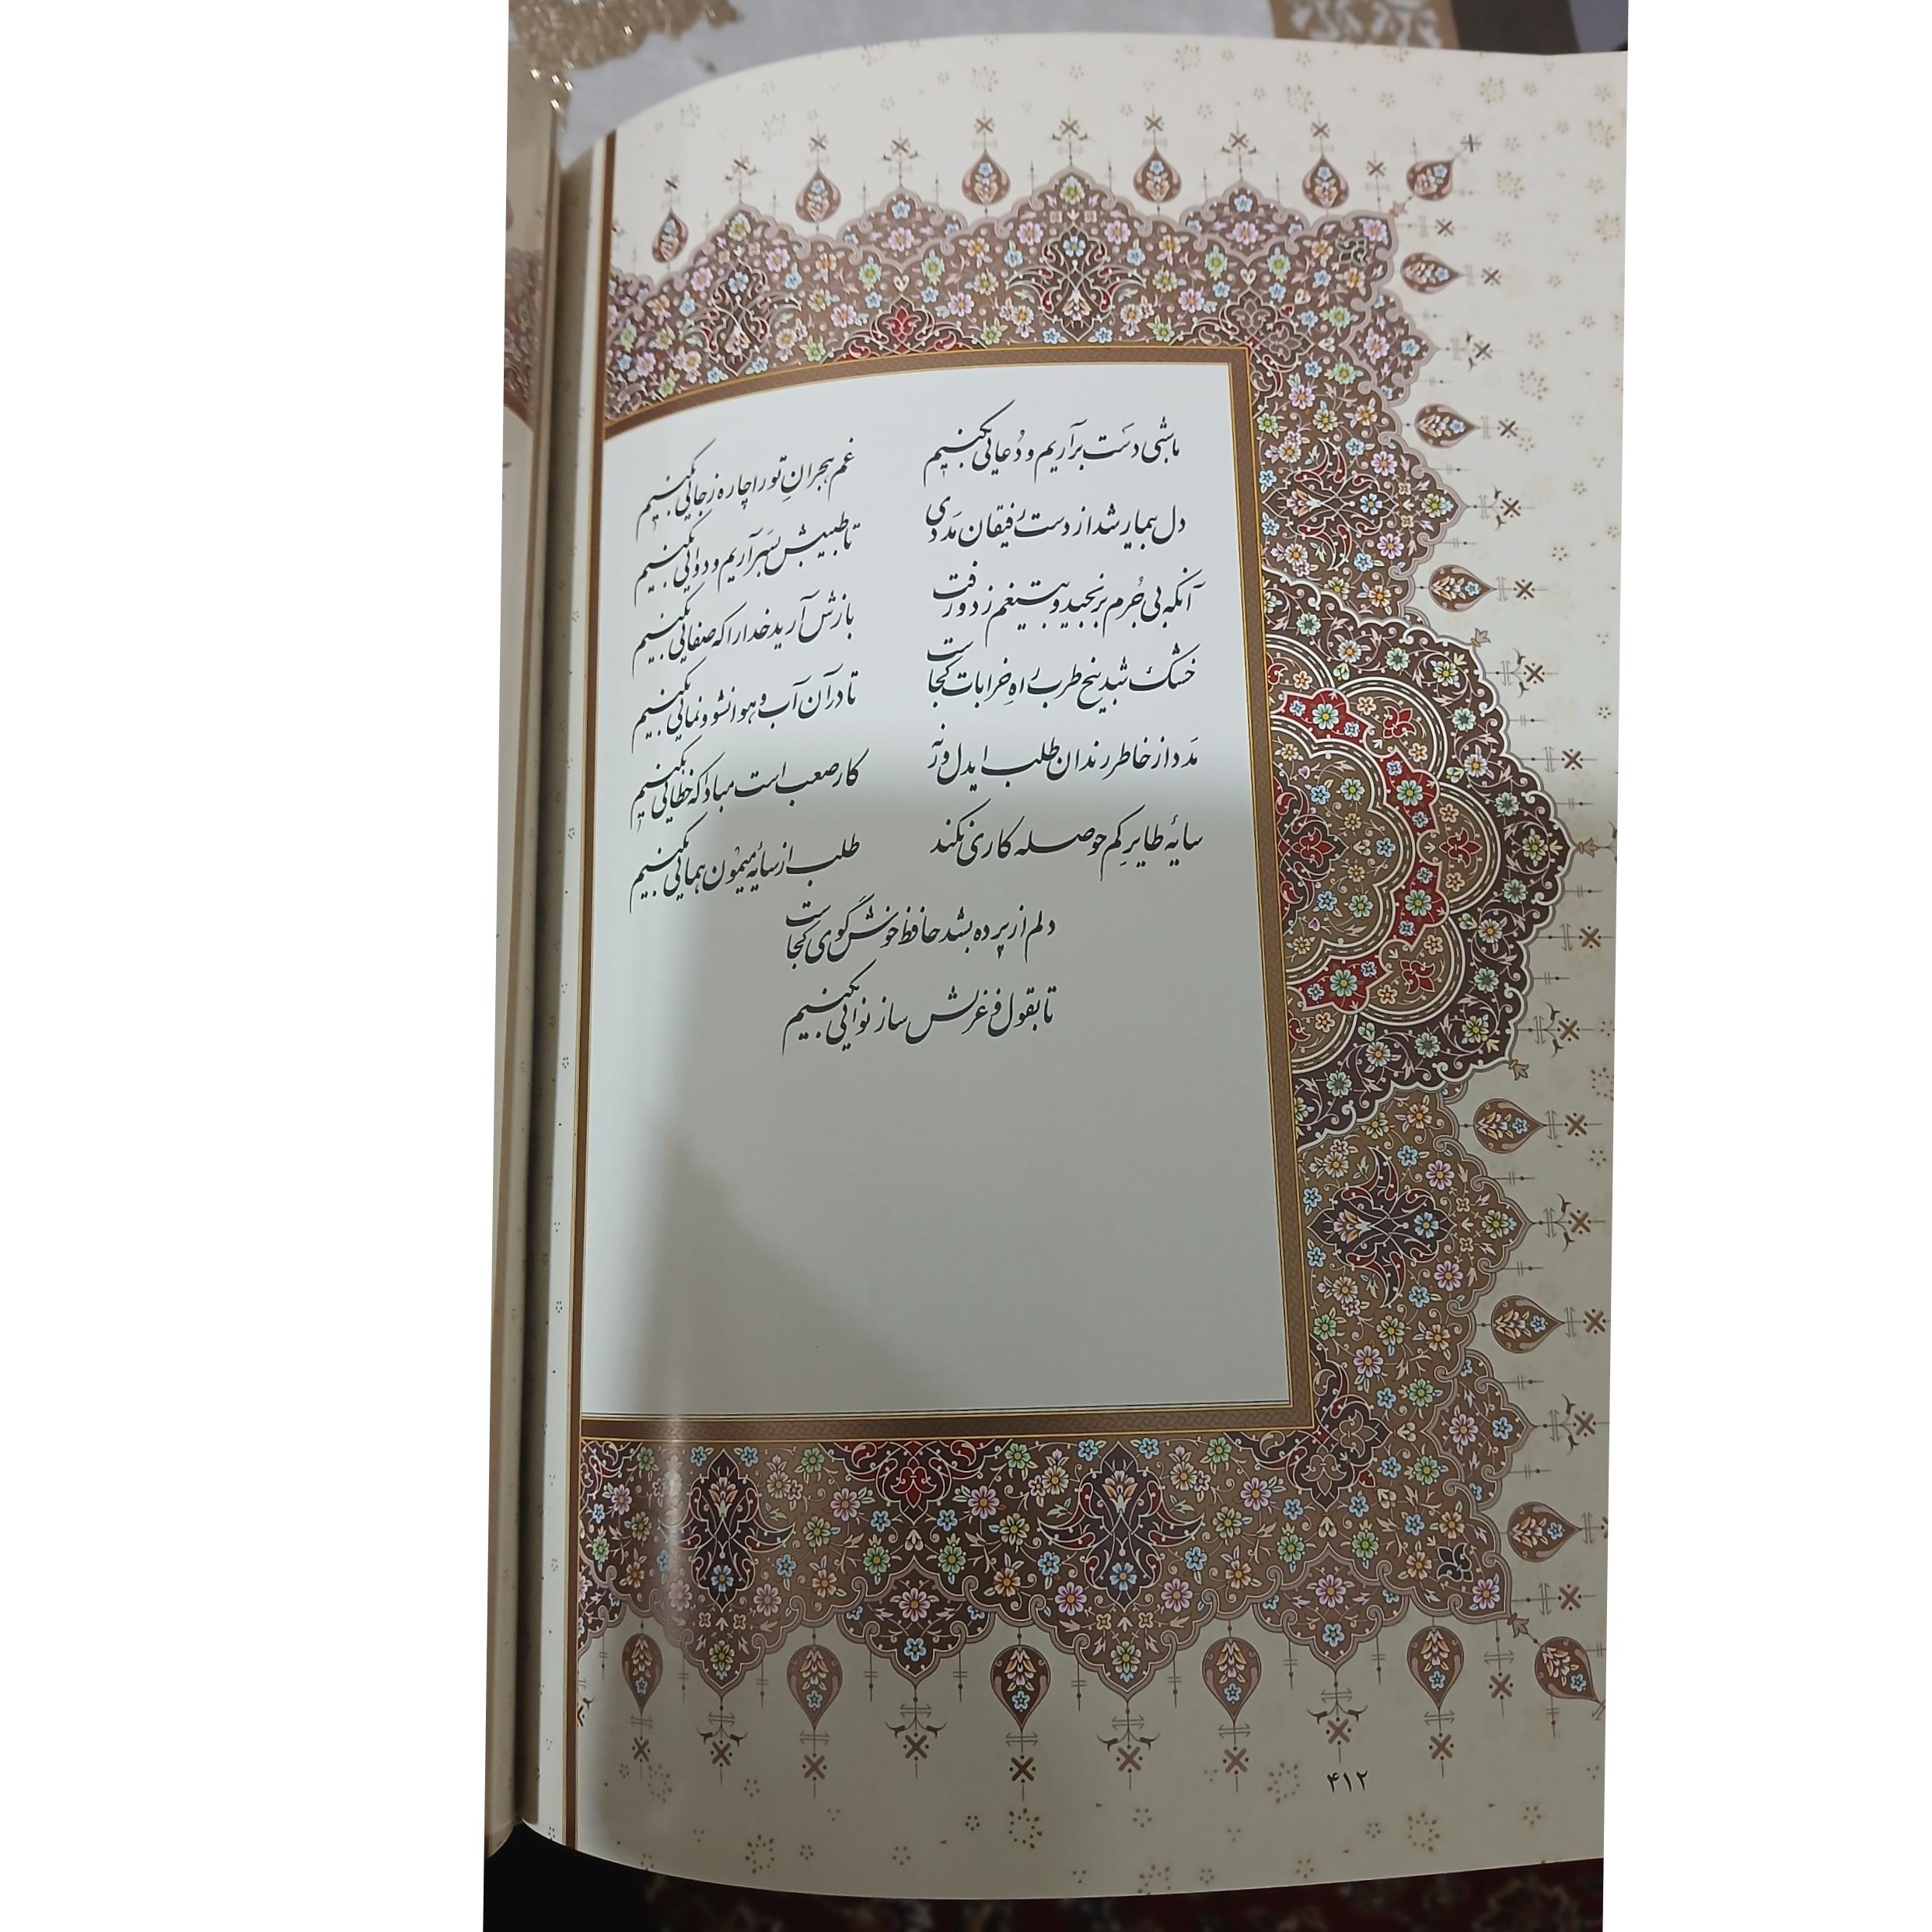 ما شبی دست برآریم و دُعائی بکنیم
غم هجرانِ تو را چاره ز جائی بکنیم
دل بیمار شد از دست رفیقان مَددی
تا طبیبش بسَر آریم و دوائی بکنیم
آنکه بی جُرم برنجید و بتیغم زد و رفت
بازش آرید خدا را که صفائی بکنیم
خشک شد بیخ طرب راهِ خرابات کجاست
تا در آن آب و هوا نشو و نمائی بکنیم
مَدد از خاطر رندان طلب ایدل ورنه
کار صعب است مبادا که خطائی بکنیم
سایهٔ طایر کم حوصله کاری نکند
طلب از سایهٔ میمون همائی بکنیم
دلم از پرده بشد حافظ خوش گوی کجاست
تا بقول و غزلش ساز نوائی بکنیم
۴۱۲